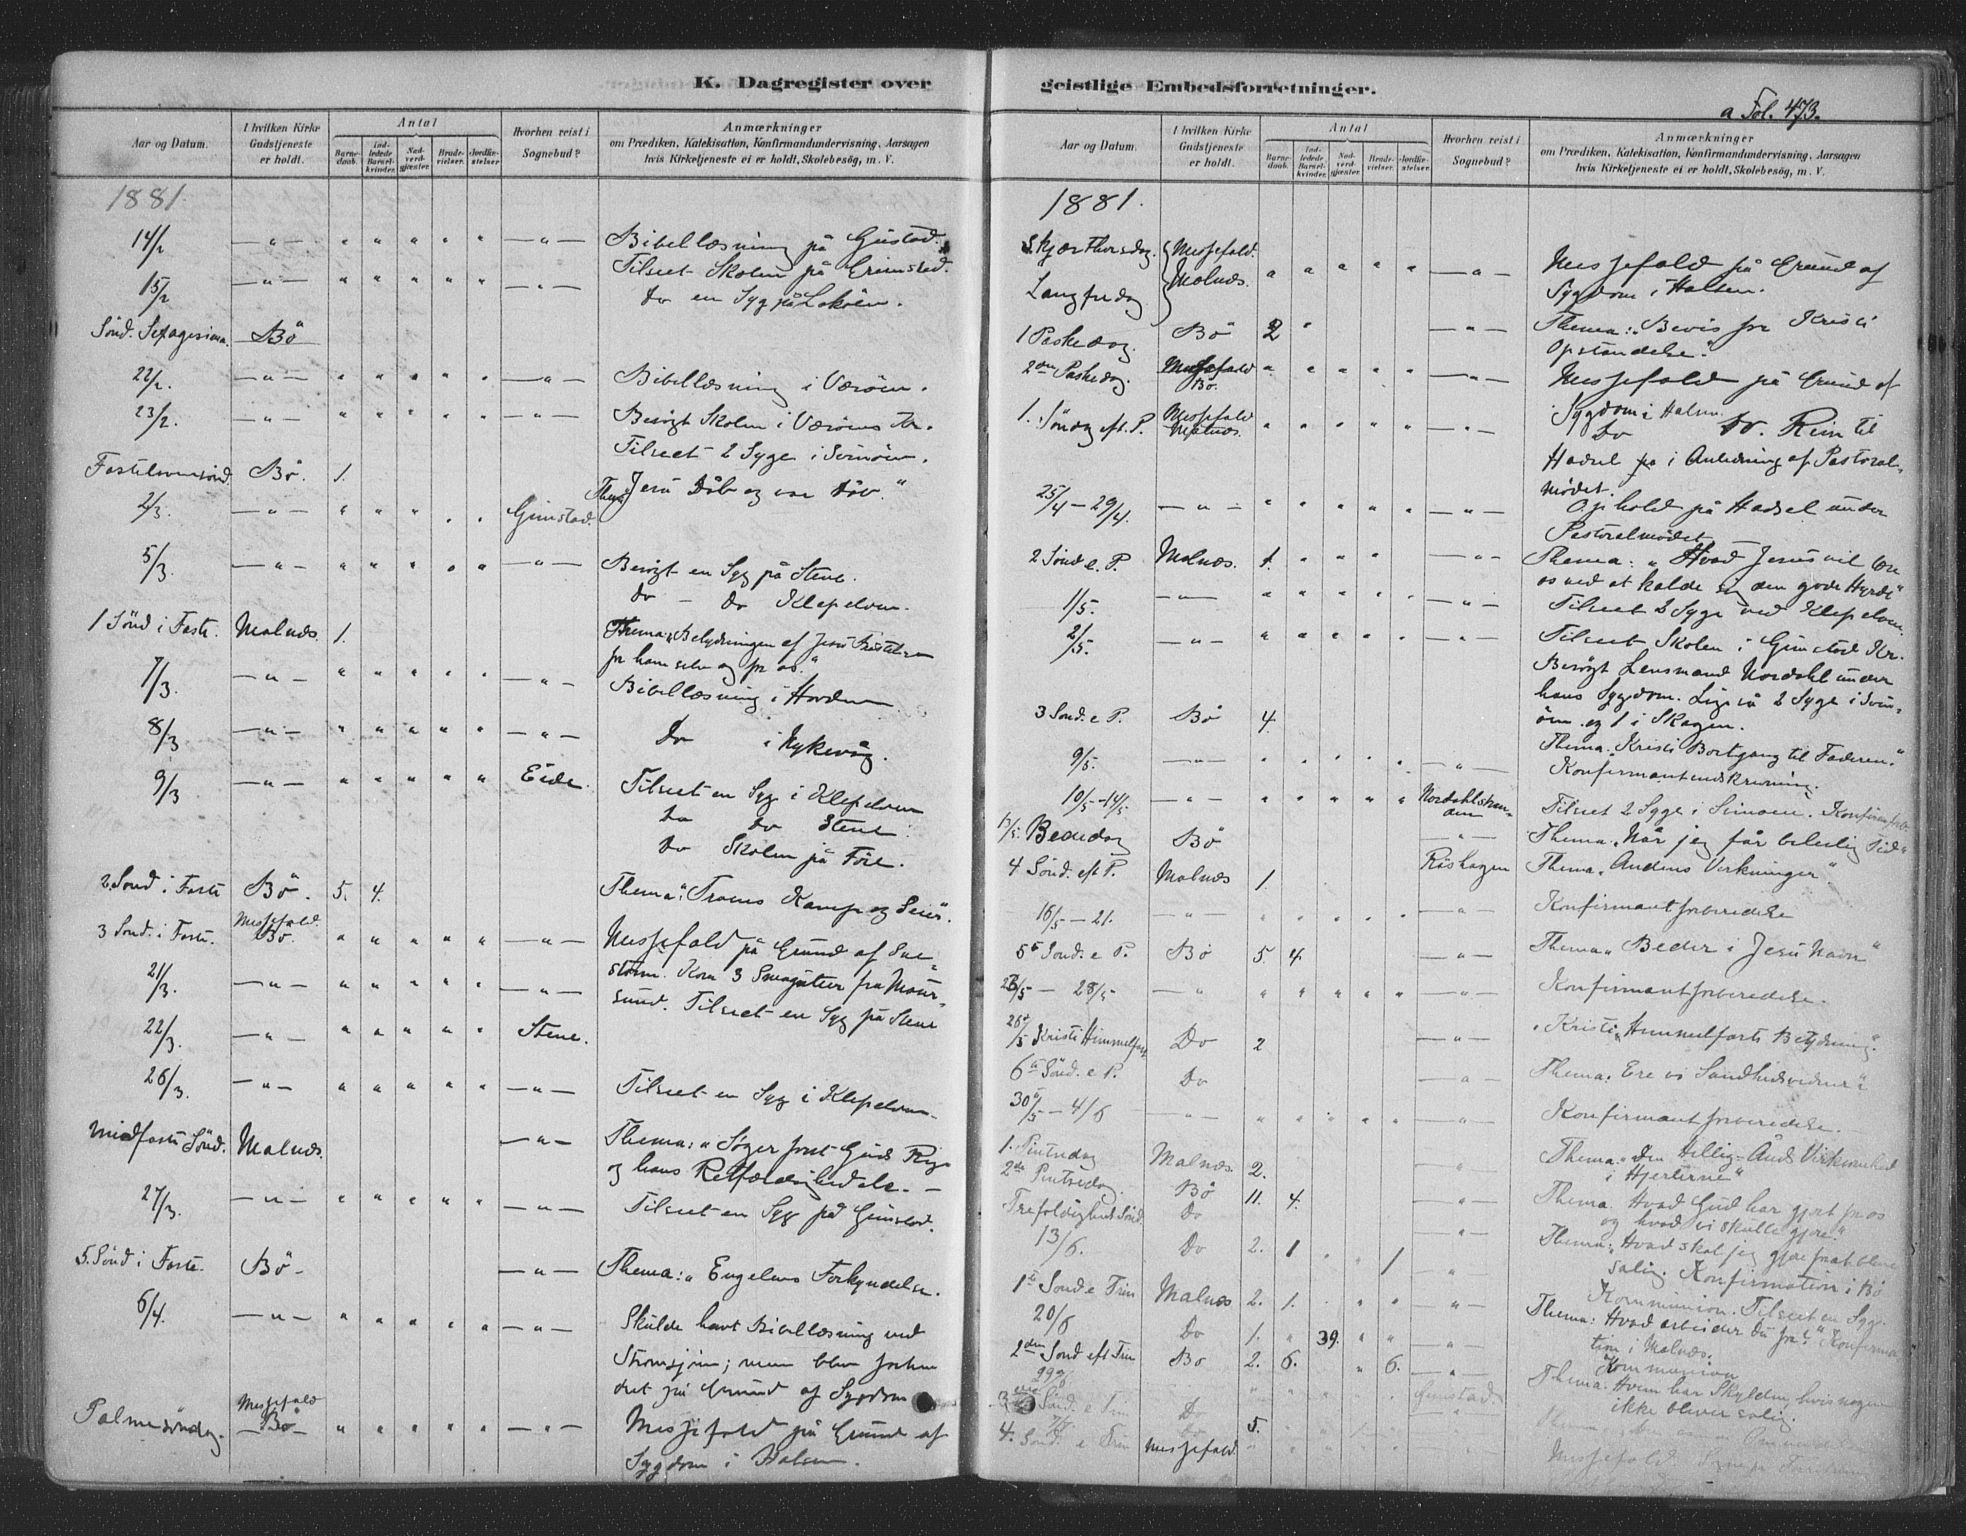 K. Dagregister over
Aar og Datum.
I hvilken Kirke Gudstjeneste er holdt.
Antal
Barne-daab.
Ind-ledede Barsel-kvinder.
Nad-verd-gjæster.
Brude-vielser.
Jordfæ-stelser.
Hvorhen reist i Sognebud?
Anmærkninger
om Prædiken, Katekisation, Konfirmandundervisning, Aarsagen
hvis Kirketjeneste ei er holdt, Skolebesög, m. V.
1881.
14/2 Bibellæsning på Gustad.
15/2 Tilseet Skolen på Grimstad.
Do en Syg på
Sönd. Bö
22/2. Bibellæsning i Væröen.
23/2. Besögt Skolen i Væröens Kr.
Tilseet 2 Syge i Svinöen.
Fastelavnssönd. Bö. 1. Thema Jesu Dåb og vor Dåb."
2/3. Gimstad.
5/3. Besögt en Syg på Stene.
Do – Do Klepelven.
1 Sönd i Faste. Malnæs. 1. Thema: Betydningen af Jesu
for ham selv og for os."
7/3. Bibellæsning i Hovden
8/3 Do i Nykevåg.
9/3 Eide. Tilseet en Syg i Klepelven
Do Do Stene.
Do Skolen på Före.
2 Sönd i Faste Bö. 5. 4. Thema: Troens Kamp og Seier.
3 Sönd. i Faste. Messefald Bö. Messefald på Grund af Sne-
21/3. storm. Kom 3 fra
sund. Tilseet en Syg på Stene
22/3. Stene.
26/3. Tilseet en Syg i Klepelven
Midfaste Sönd. Malnæs. Thema: "Söger först Guds Rige
og hans Retfærdighed etc. –
27/3. Tilseet en Syg på Gimstad.
5. Sönd i Faste. Bö – Thema: "Engelens Forkyndelse.
6/4. Skulde havt Bibellæsning ved
Straumsjöen; men blev forhin-
dret på Grund af Sygdom
Palmesöndag. Messefald Bö Messefald på Grund af
Sygdom i Halsen.
geistlige Embedsforretninger.
a Fol. 473.
Aar og Datum.
I hvilken Kirke Gudstjeneste er holdt.
Antal
Barne-daab.
Ind-ledede Barsel-kvinder.
Nad-verd-gjæster.
Brude-vielser.
Jordfæ-stelser.
Hvorhen reist i Sognebud?
Anmærkninger
om Prædiken, Katekisation, Konfirmandundervisning, Aarsagen
hvis Kirketjeneste ei er holdt, Skolebesög, m. V.
1881.
Skjærthorsdag Messefald. Messefald på Grund af
Langfredag Malnæs. Sygdom i Halsen.
1 Paskedag. Bö 2 Thema: "Bevis for Kristi
Opstandelse."
2den Paskedag. Messefald Bö. Messefald på Grund af
Sygdom i Halsen.
1. Söndag eft. P. Messefald Malnæs. Do Do. Reise til
Hadsel i Anledning af Pastoral-
mödet.
25/4 – 29/4. Ophold på Hadsel under
Pastoralmödet
2 Sönd e. P. Malnæs. 1. Thema: "Hvad Jesus vil lære
os ved at kalde sig den gode Hyrde"
1/5. Tilseet 2 Syge ved Klepelven.
2/5. Tilseet Skolen i Gimstad Kr.
Besögt Lensmand Nordahl under
hans Sygdom. Ligeså 2 Syge i Svin-
öen og 1 i Skagen.
3 Sönd. e P. Bö 4. Thema. Kristi Bortgang til Faderen."
9/5. Konfirmantindskrivning.
10/5–14/5. Tilseet 2 Syge i Svinöen.
13/5. Bededag Bö Thema: Når jeg får beleilig Tid"
4 Sönd. eft P. Malnæs 1. Thema. Andens Virkninger"
16/5 – 21. Konfirmantforberedelse
5te Sönd. e P. Bö 5. 4. Thema "Beder i Jesu Navn"
– 28/5 Konfirmantforberedelse.
26/5 Kristi Himmelfart Do 2 "Kristi Himmelfarts Betydning."
6te Sönd. e P. Do Thema: Ere vi Sandhedsvidner"
30/5 – 4/6 Konfirmantforberedelse.
1. Pintsedag Malnæs. 2. Thema. "Den Hellig-Ånds Virksomhed
i Hjerterne"
2den Pintsedag. Bö 11. 4. Thema. Hvad Gud har gjort for os
og hvad vi skulle gjöre."
Trefoldighed Sönd. Do Thema: Hvad skal jeg gjöre for at blive
salig. Konfirmation i Bö
13/6. Do 2. 1 1 Kommunion. Tilseet en Syg.
1ste Sönd e Trin Malnæs 2. 1. Thema: Hvad arbeider Du for?" Konfirma-
tion i Malnæs.
20/6 Do 1. 39. Kommunion
2den Sönd eft Trin Bö 2. 6. 6. Thema. Hvem har Skylden, hvis nogen
ikke bliver salig.
Gimstad.
Sönd. e Trin Do 5.
4. Sönd. e Trin Messefald. Messefald.